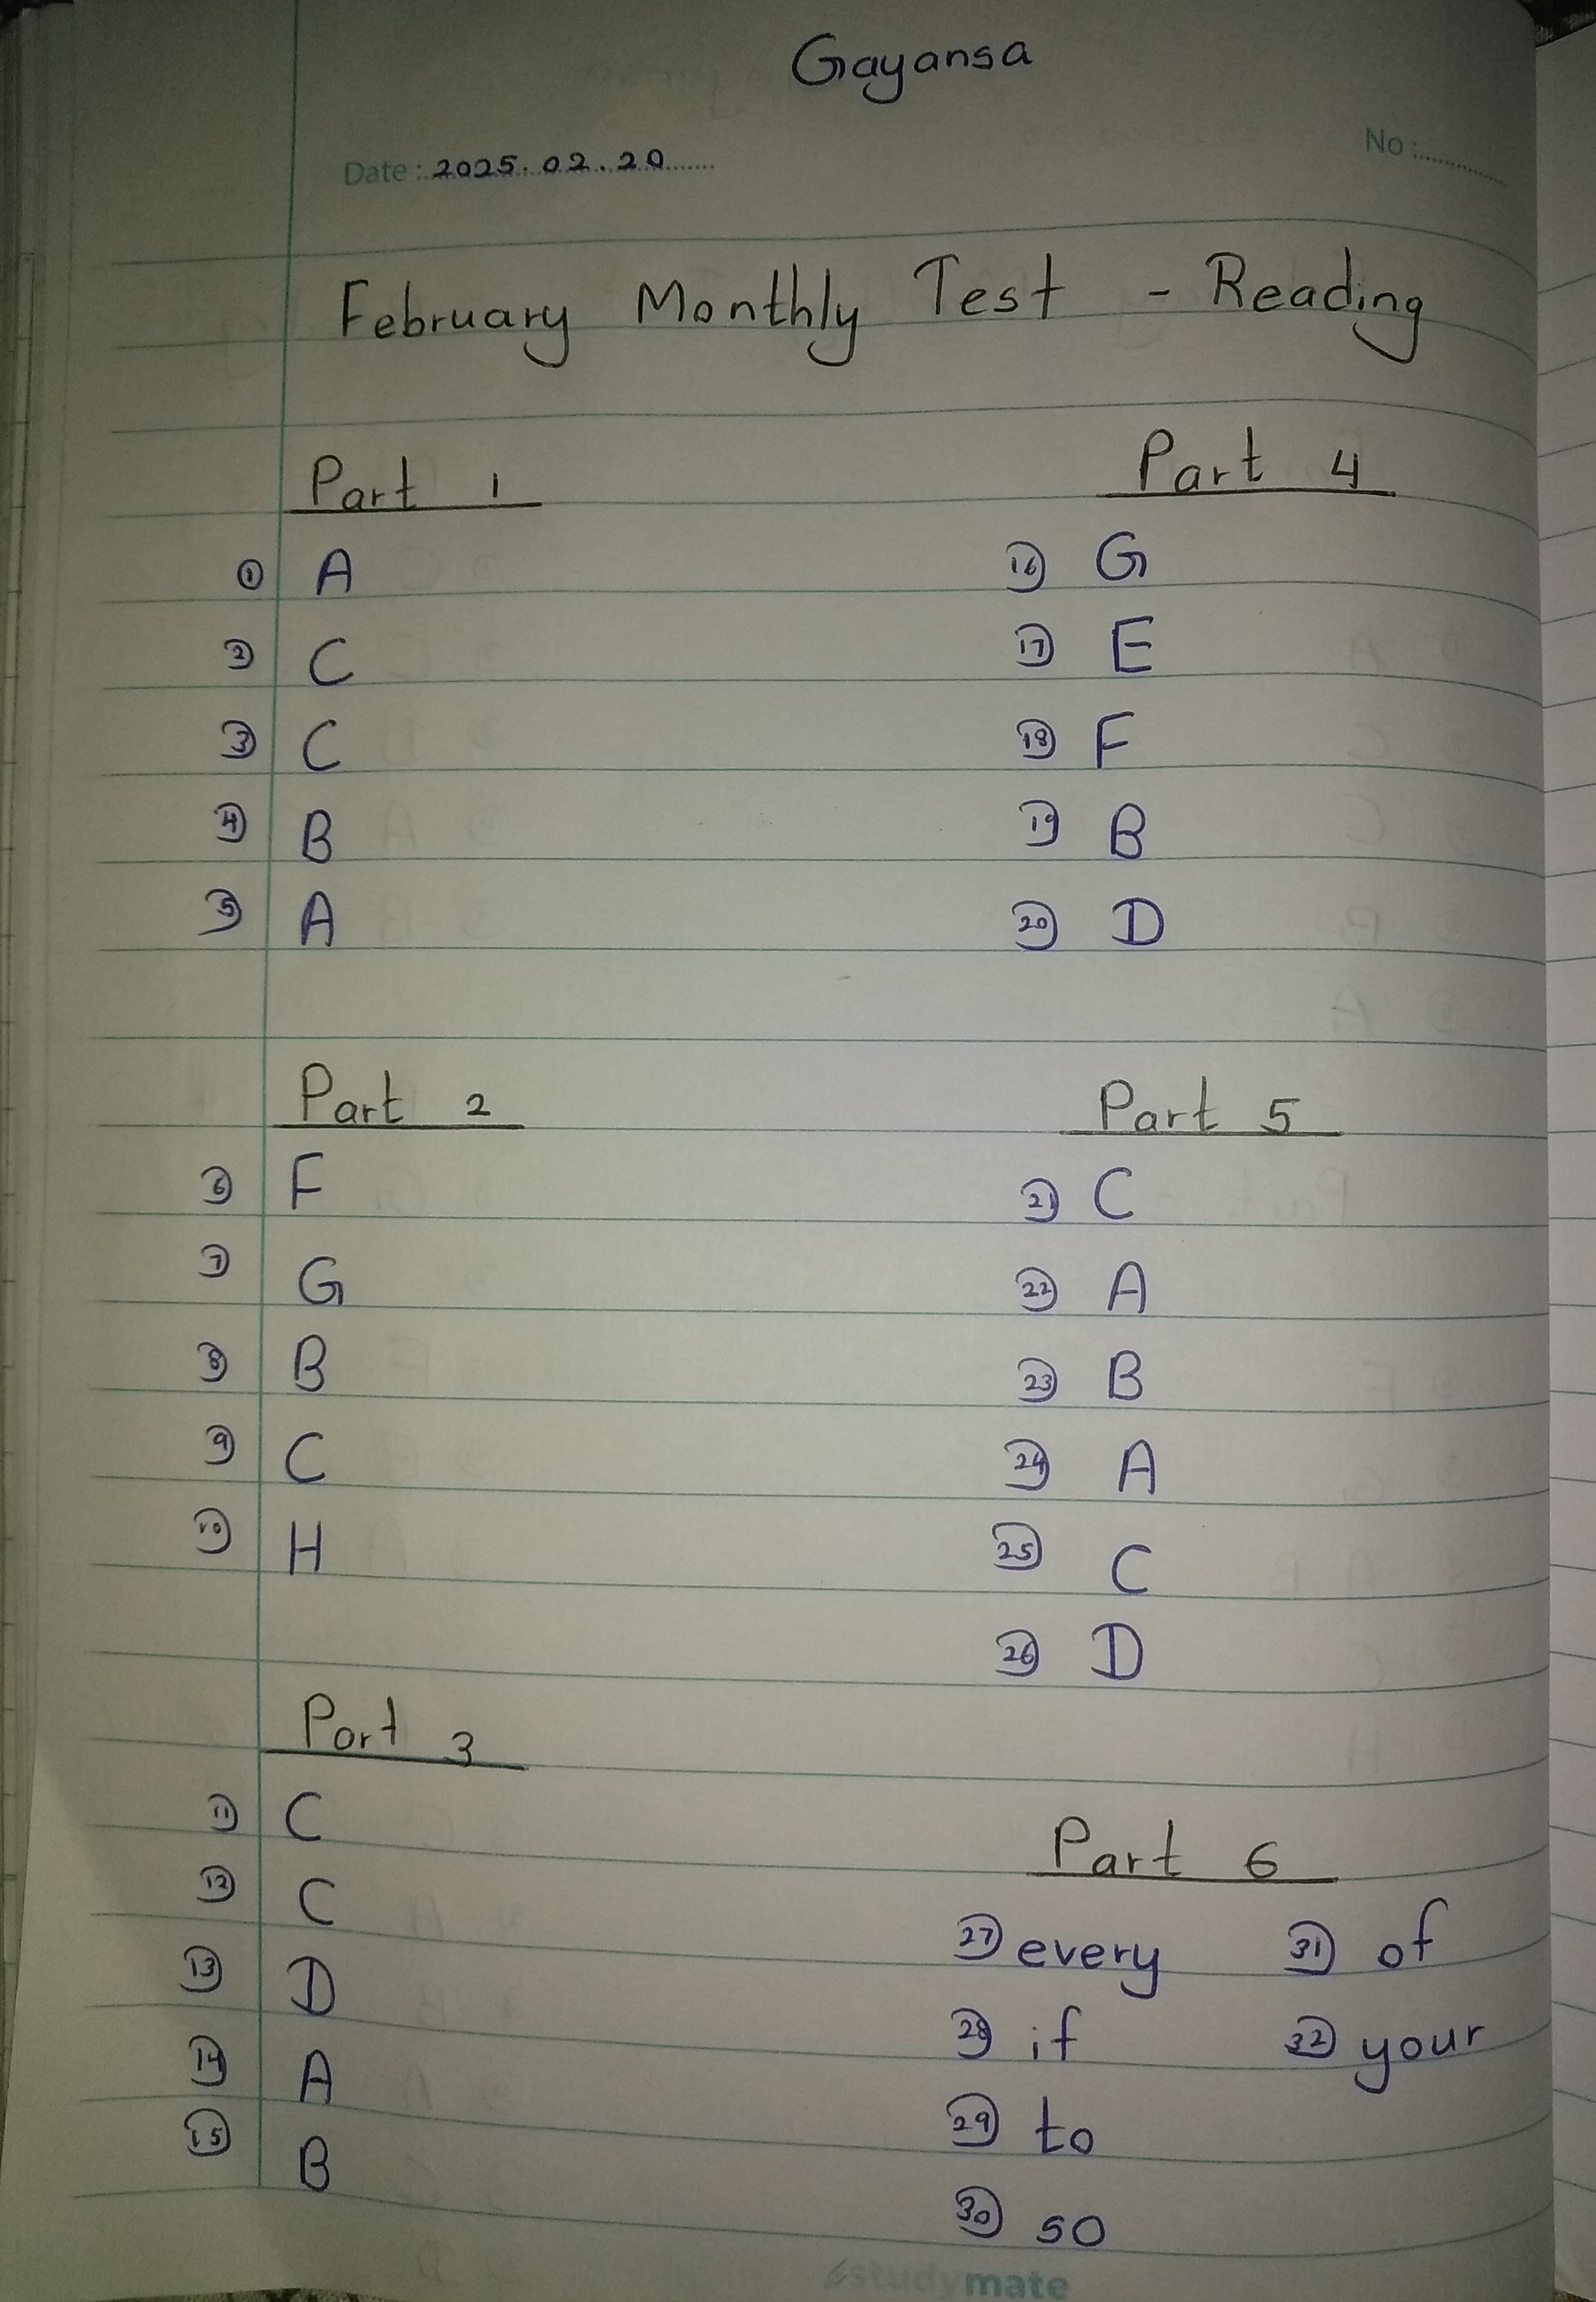 Gayansa
Date : 2025.02.20
No :
February Monthly Test - Reading
Part 1
① A
② C
③ C
④ B
⑤ A
Part 2
⑥ F
⑦ G
⑧ B
⑨ C
⑩ H
Part 3
⑪ C
⑫ C
⑬ D
⑭ A
⑮ B
Part 4
⑯ G
⑰ E
⑱ F
⑲ B
⑳ D
Part 5
㉑ C
㉒ A
㉓ B
㉔ A
㉕ C
㉖ D
Part 6
㉗ every
㉘ if
㉙ to
㉚ so
㉛ of
㉜ your
studymate